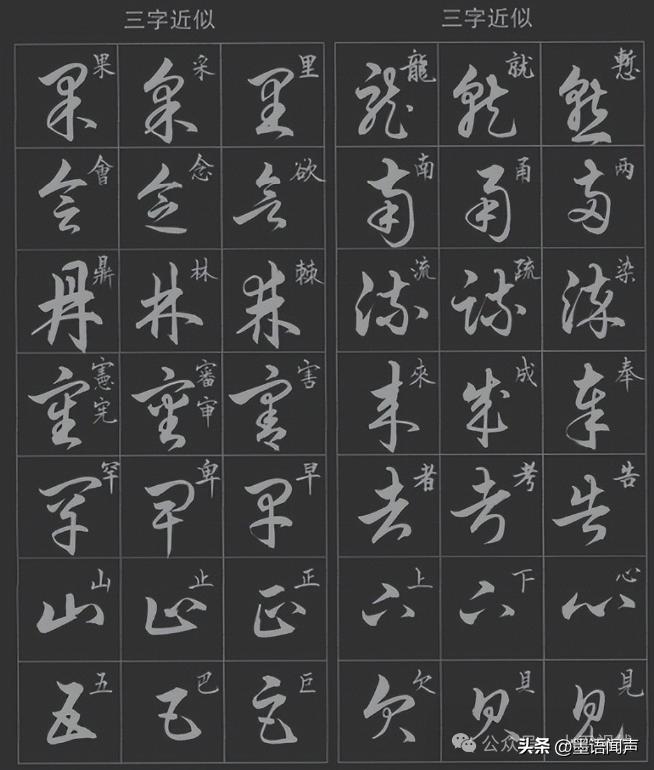 三字近似 三字近似
果 采 里 龍 就 慙
會 念 欲 南 甬 两
鼎 林 棘 流 疏 染
憲宪 審审 害 來 成 奉
罕 卑 早 者 考 告
山 止 正 上 下 心
五 巴 巨 欠 具 見
头条 @墨语闻声